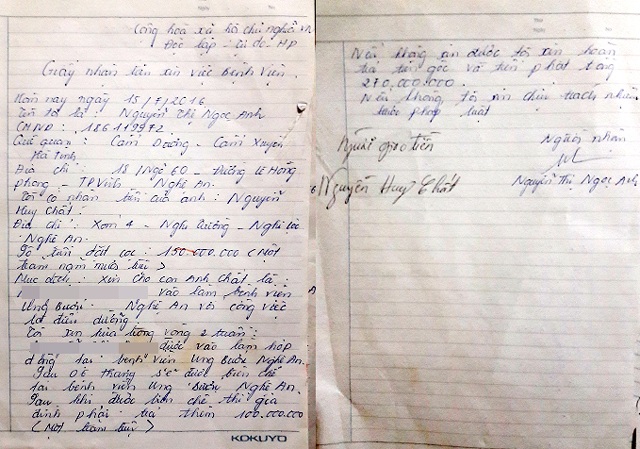 Cộng hòa xã hội chủ nghĩa VN
Độc lập - Tự do - HP
Giấy nhận tiền xin việc Bệnh Viện.
Hôm nay ngày 15/7/2016
Tên tôi là: Nguyễn Thị Ngọc Anh
CMND: 186119972
Quê quán: Cẩm Dương - Cẩm Xuyên
Hà Tĩnh
Địa chỉ: 18 Ngõ 60 - Đường Lê Hồng
phong - TP Vinh Nghệ An.
Tôi có nhận tiền của anh: Nguyễn
Huy Chất.
Địa chỉ: Xóm 4 - Nghi Lộc
Nghệ An.
Số tiền đặt cọc: 150.000.000 (Một
trăm năm mươi triệu)
Mục đích: Xin cho con Anh Chất là:
vào làm bệnh viện
Ung Bướu Nghệ An với công việc
là điều dưỡng.
Tôi xin hứa trong vòng 2 tuần:
được vào làm hợp
đồng tại bệnh viện Ung Bướu Nghệ An.
Sau 06 tháng sẽ được biên chế
tại bệnh viện Ung Bướu Nghệ An.
Sau khi được biên chế thì gia
đình phải trả thêm 100.000.000
(Một trăm triệu)
KOKUYO
Nếu không xin được tôi xin hoàn
trả tiền gốc và tiền phạt tổng
270.000.000.
Nếu không tôi xin chịu trách nhiệm
trước pháp luật
Người giao tiền
Người nhận
Nguyễn Huy Chất
Nguyễn Thị Ngọc Anh